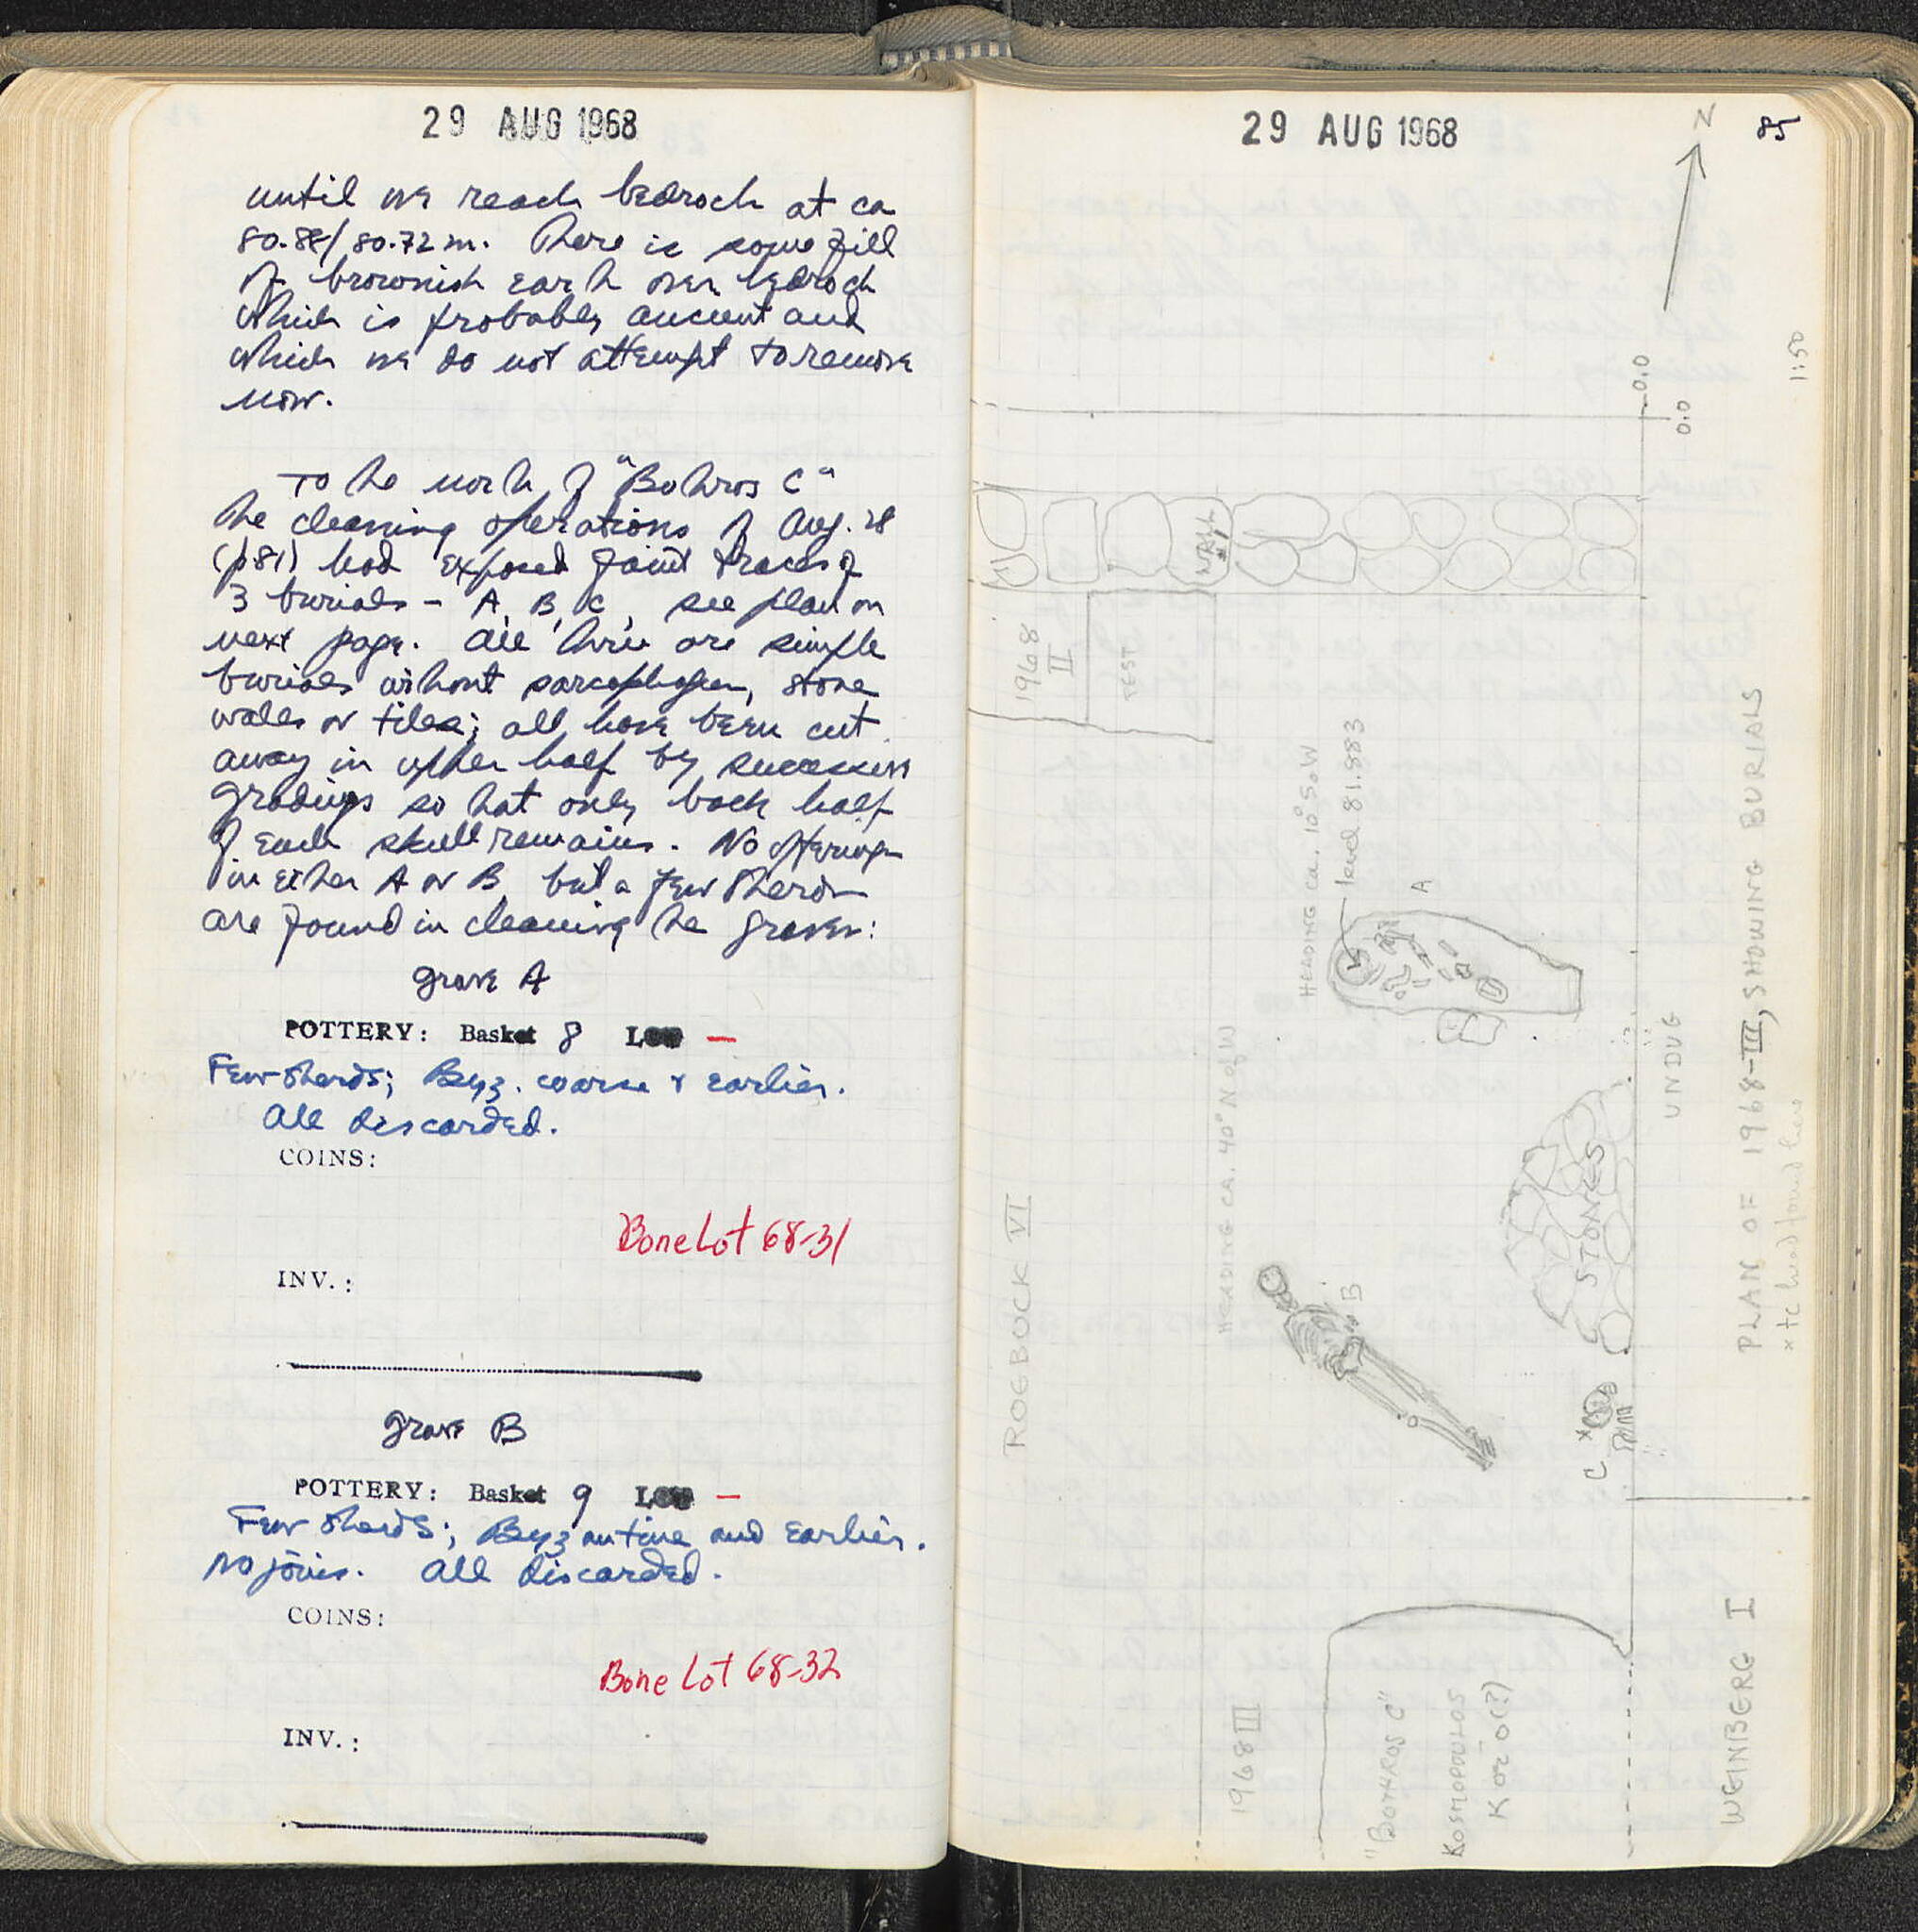 29 AUG 1968
until we reach bedrock at ca
80.88/80.72 m. There is some fill
of brownish earth over bedrock
which is probably ancient and
which we do not attempt to remove
now.
To the north of "Bothros C"
the cleaning operations of Aug. 28
(p81) had exposed faint traces of
3 burials - A, B, C, see plan on
next page. All three are simple
burials without sarcophagus, stone
walls or tiles; all have been cut
away in upper half by successive
gradings so that only back half
of each skull remains. No offerings
in either A or B, but a few sherds
are found in cleaning the graves:
Grave A
POTTERY: Basket 8 Lot —
Few sherds; Byz. coarse & earlier.
All discarded.
COINS:
Bone Lot 68-31
INV.:
Grave B
POTTERY: Basket 9 Lot —
Few sherds; Byzantine and earlier.
No joins. All discarded.
COINS:
Bone Lot 68-32
INV.:
29 AUG 1968
85
N
1:50
0.0
0.0
WALL
1968
II
TEST
HEADING ca. 10° S of W
level 81.883
A
UNDUG
PLAN OF 1968-III, SHOWING BURIALS
x tc head found here
STONES
HEADING CA. 40° N of W
B
ROEBUCK VI
C
1968 III
"BOTHROS C"
KOSMOPOULOS
WEINBERG I